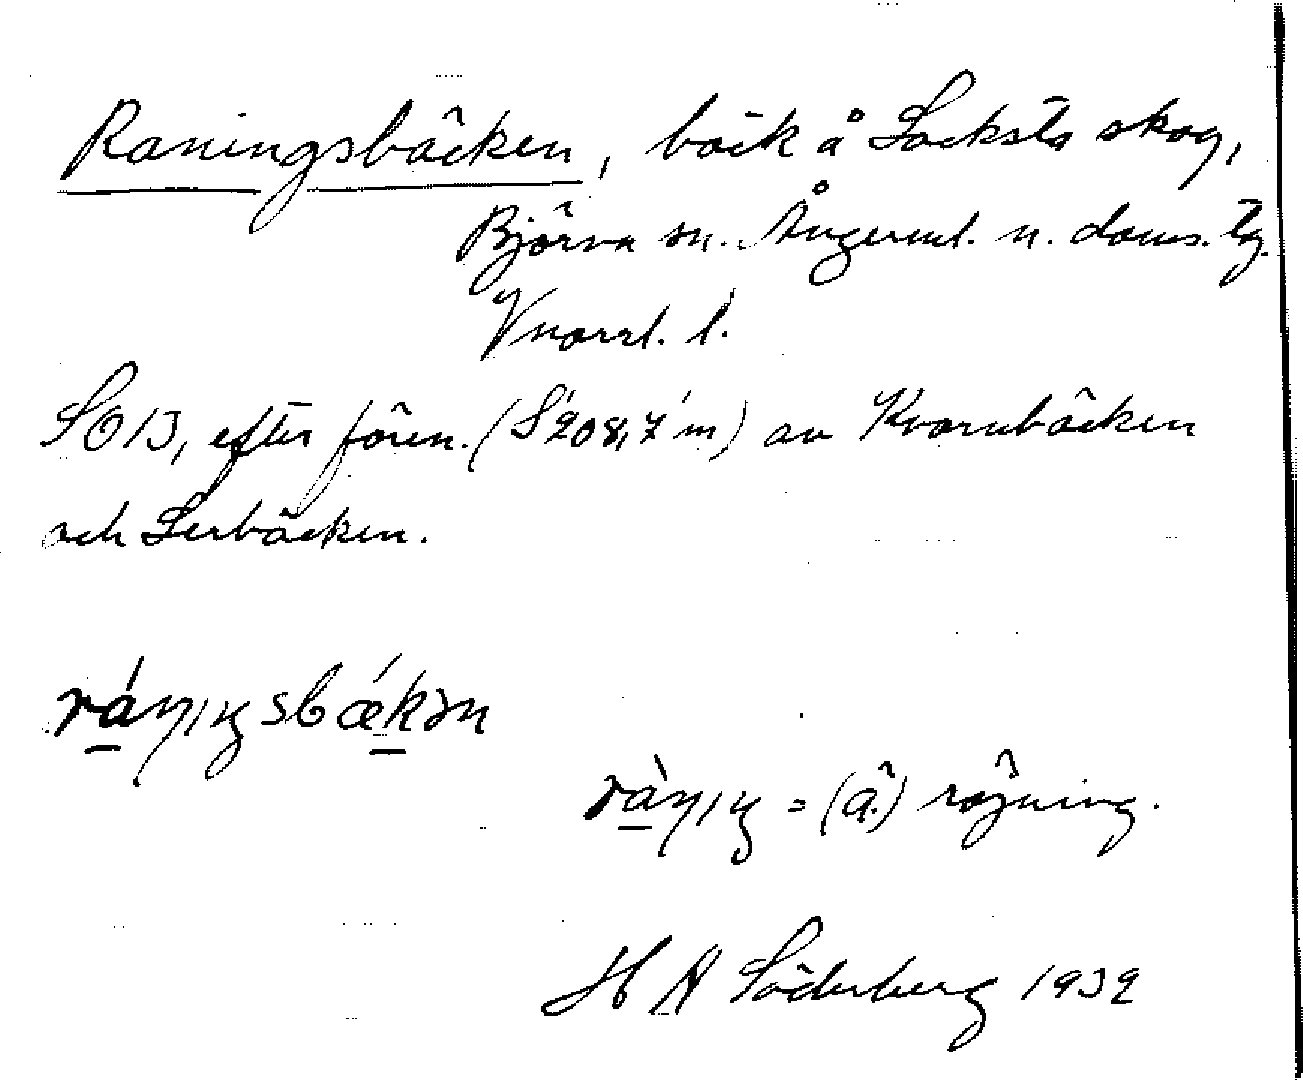 Raningsbäcken, bäck å Locksta skog,
Björna sn. Ångerml. n. doms. tg.
Vnorrl. l.
SO 13, efter fören. (S 208,7 m) av Kvarnbäcken
och Lerbäcken.
= (å.) röjning.
H A Söderberg 1932